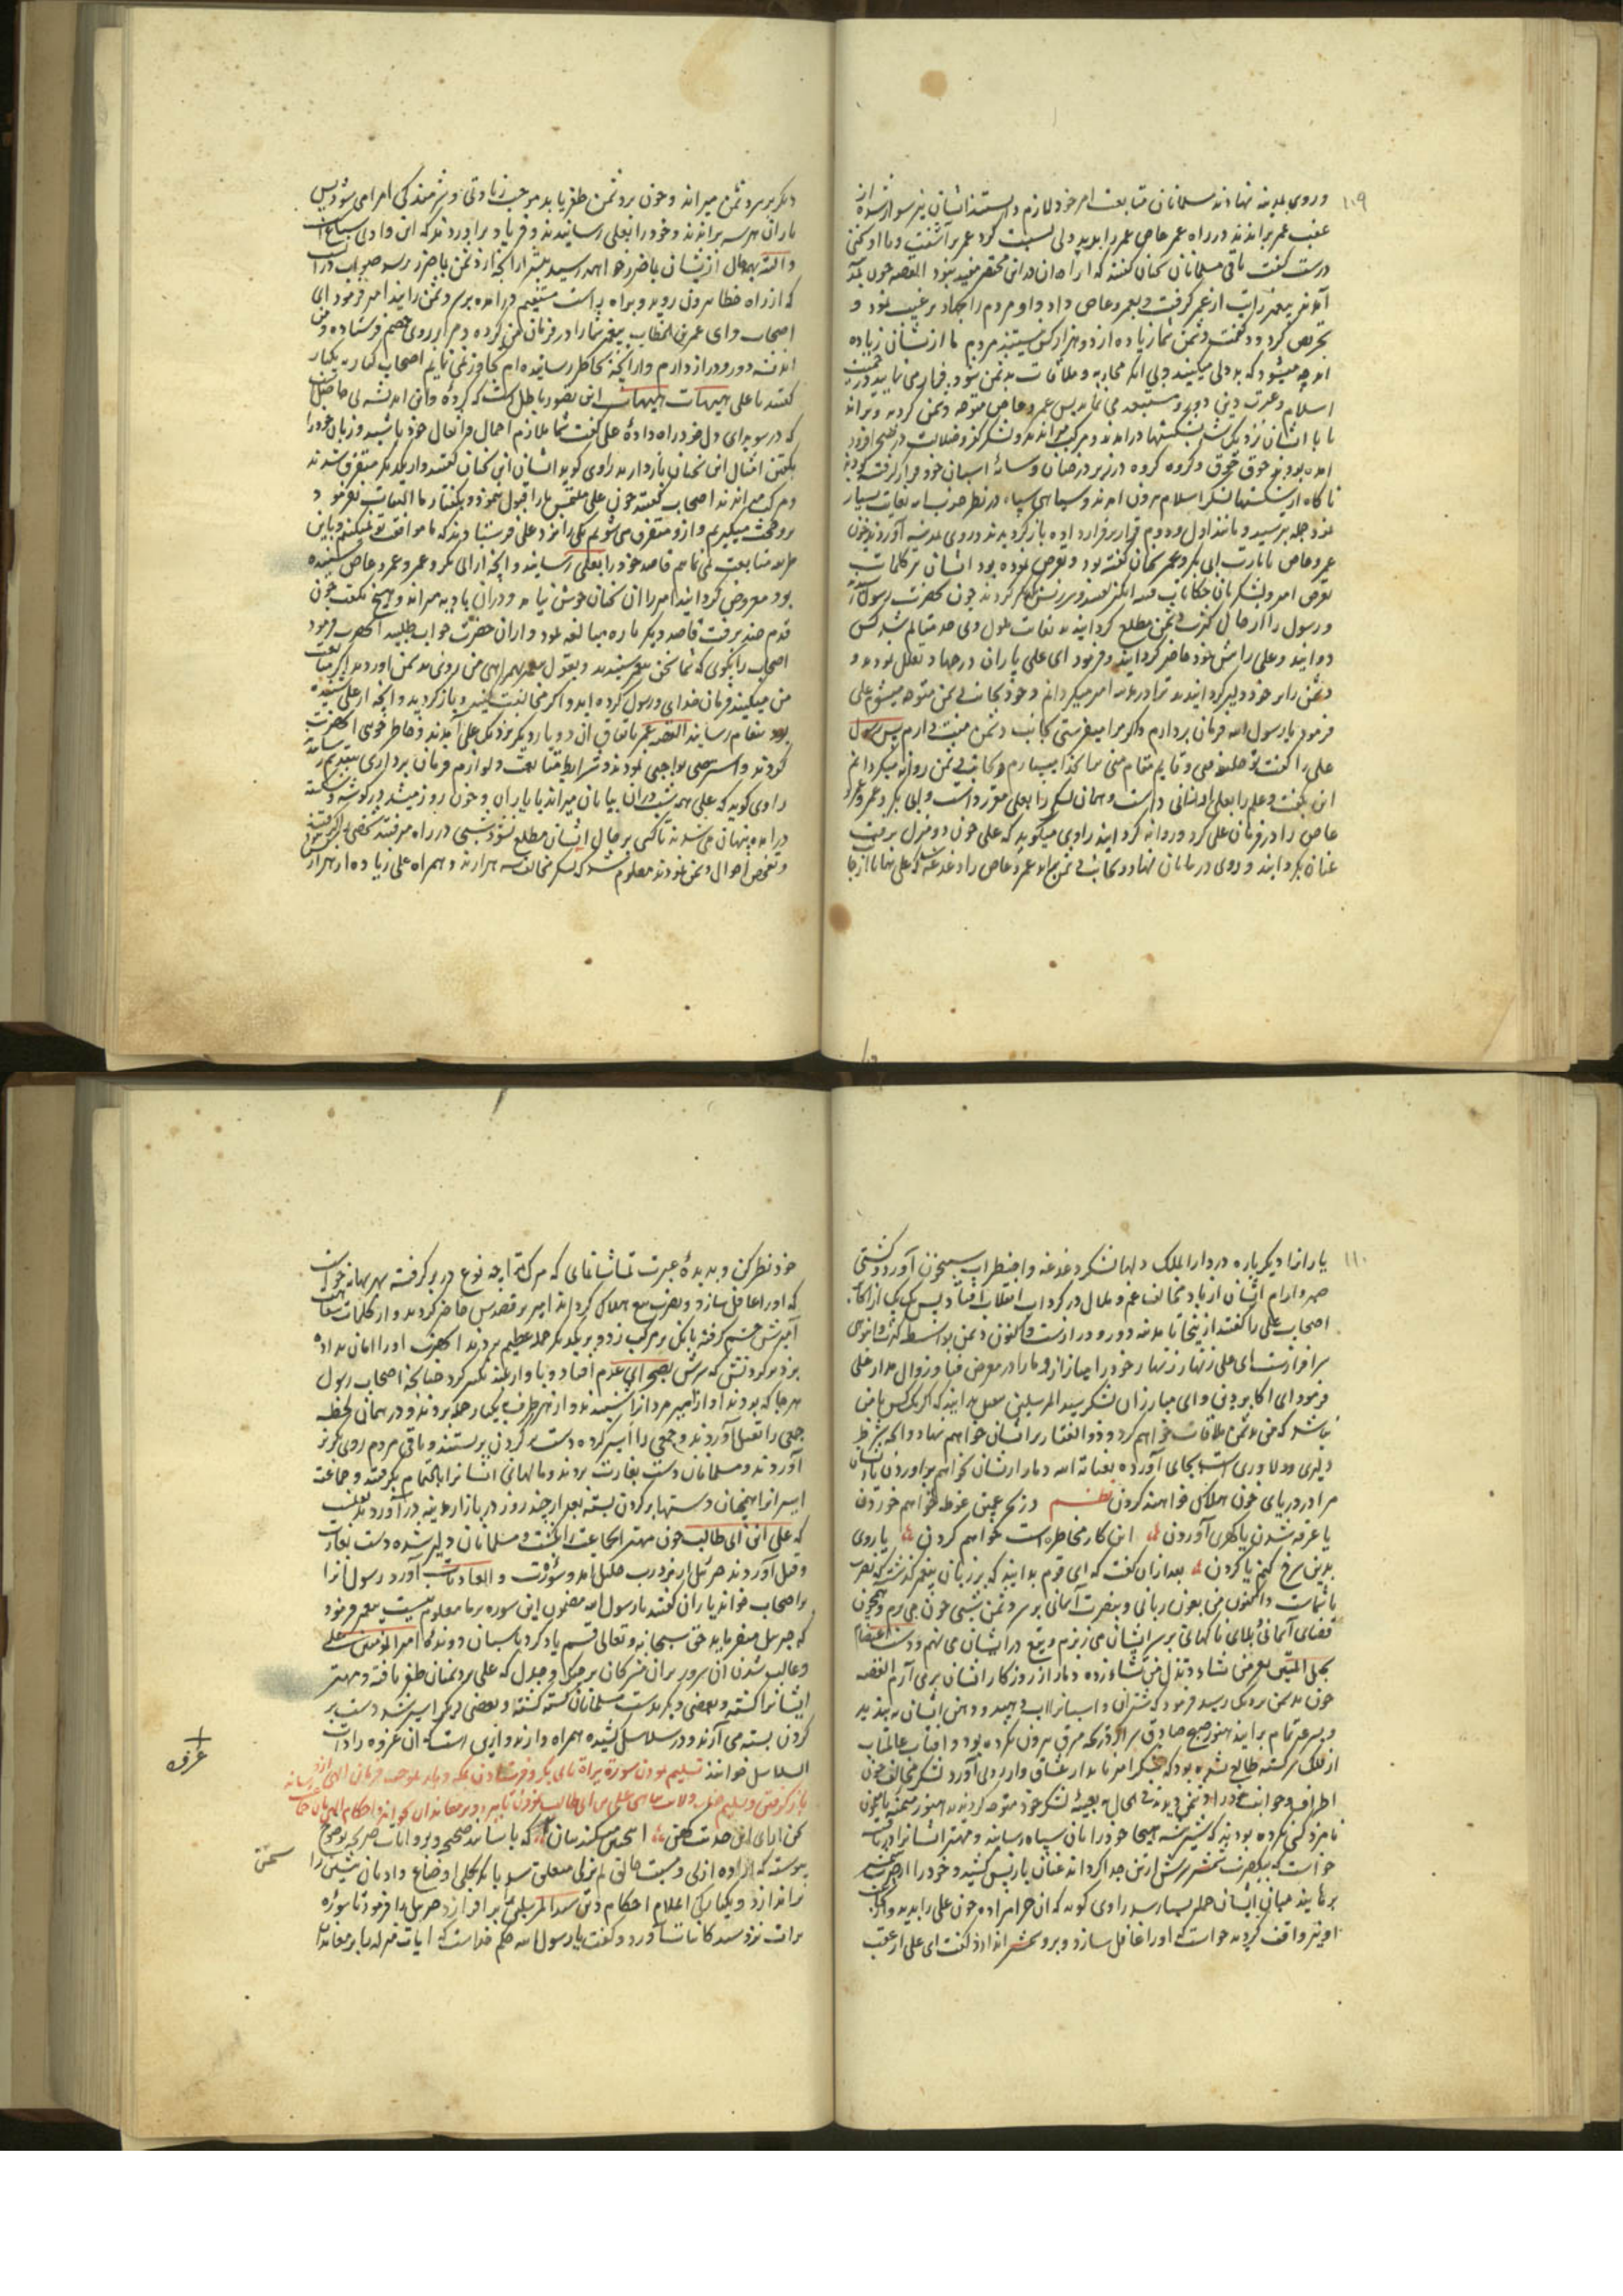 ۱۰۹
و روی بمدینه نهادند مسلمانان متابعت امر خود لازم دانستند ایشان نیز سوار شده از
عقب عمر براندند در راه عمر عاص عمر را بددلی نسبت کرد عمر برآشفت و با او گفتی
درست گفت باقی مسلمانان سخنان گفتند که ایراد آن در این مختصر مفید نبود القصه چون بمدینه
آمدند پیغمبر رایت از عمر گرفت و بعمرو عاص داد و او مردم را بجهاد ترغیب نمود و
تحریص کرد و گفت دشمن شما زیاده از دو هزار کس نیستند مردم ما ازیشان زیاده
اند چه میشود که بددلی میکنید
اسلام و غیرت دین دور و مستبعد می نماید پس عمرو عاص متوجه دشمن گردید و براند
تا با ایشان نزدیک شد
امده بودند جوق جوق و گروه گروه در زیر درختان و سایه اسبان خود قرار گرفته بودند
ناگاه از شکستها لشکر اسلام بیرون امدند و سیاهی سپاه در نظر حزب ایشان بغایت بسیار
نمود جمله بترسید و مانند اول و دوم قرار بر فرار داده بازگردیدند و روی بمدینه آوردند چون
عمرو عاص با ابی بکر و عمر سخنان گفته بود و تعرض نموده بود ایشان نیز کلمات
تعرض امیز و لشکریان حکایات فتنه انگیز گفتند و سرزنش گر کردند چون بحضرت رسول آمد
و رسول را از حال کثرت دشمن مطلع گردانیدند بغایت ملول و بی حد متالم شد کس
دوانید و علی را پیش خود حاضر گردانید و فرمود ای علی یاران در جهاد تعلل نمودند و
دشمن را بر خود دلیر گردانیدند ترا در مدینه امیر میگردانم و خود بجانب دشمن متوجه میشوم علی
فرمود یا رسول الله فرمان بردارم و اگر مرا میفرستی بجانب دشمن منت دارم پس رسول
علی را گفت تو خلیفه منی و قایم مقام منی ترا بخدا میسپارم و بجانب دشمن روانه میگردانم
این بگفت و علم را بعلی ارزانی داشت و همان لشکر را بعلی مقرر داشت و ابی بکر و عمر و عمرو
عاص را در فرمان علی کرد و روانه گردانید راوی میگوید که علی چون دو منزل برفت
عنان بگردانید و روی در بیابان نهاد و بجانب دشمن براند عمرو عاص را دغدغه شد که علی بناگاه ازجا
دیگر بر سر دشمن میراند و چون بر دشمن ظفر یابد موجب زیادتی و شرمندگی امرا می شود پس
یاران هر سه براندند و خود را بعلی رسانیدند و فریاد برآوردند که این وادی سباع است
و البته بهر حال ازیشان باضرر خواهیم رسید بیشتر از آنچه از دشمن باضرر رسد صواب درآنست
که از راه خطا بیرون روید و براه راست مستقیم درامده بر سر دشمن رانید امیر فرمود ای
اصحاب و ای عمر بن الخطاب پیغمبر شما را در فرمان من کرده و مرا بر روی خصم فرستاده و من
اندیشه دور و دراز دارم و از آنچه بخاطر رسانیده ام تجاوز نمی نمایم اصحاب کبار بیکبار
گفتند یا علی هیهات هیهات این تصور باطل است که کردهٔ و این اندیشه بی حاصل است
که در سویدای دل خود راه دادهٔ علی گفت شما ملازم احمال و اثقال خود باشید و زبان خود را
بگفتن امثال این سخنان باز دارید راوی گوید ایشان این سخنان گفتند و از یکدیگر متفرق شدند
و مرکب میراندند اصحاب گفتند چون علی ملتمس ما را قبول ننمود و بگفتار ما التفات نفرمود
برو حجت میگیریم و ازو متفرق می شویم یکی را نزد علی فرستادند که ما موافقت تو نمیکنیم و باین
طریق متابعت نمی نماییم قاصد خود را بعلی رسانید و آنچه از ابی بکر و عمر و عمرو عاص شنیده
بود معروض گردانید امیر را آن سخنان خوش نیامد و دران بادیه میراند و هیچ نگفت چون
قدم چند برفت قاصد دیگر باره مبالغه نمود و از آن حضرت جواب طلبید آنحضرت فرمود
اصحاب را بگوی که شما سخن پیغمبر شنیدید و بقول پیغمبر بهمراهی من روی بدشمن آوردید اگر متابعت
من میکنید فرمان خدای و رسول کرده اید و اگر مخالفت میکنید بازگردید و آنچه از علی شنیده
بود بمقام رسانید القصه عمر باتفاق آن دو یار دیگر نزدیک علی آمدند و خاطر جویی آنحضرت
کردند و استرضای بواجبی نمودند و شرایط متابعت و لوازم فرمان برداری بتقدیم رسانیدند
راوی گوید که علی همه شب دران بیابان میراند با یاران و چون روز میشد در گوشه و شکسته
درامده پنهان می شدند تا کسی بر حال ایشان مطلع نشود شبی در راه میرفتند شخصی را بگرفتند
و تفحص احوال دشمن نمودند معلوم شد که لشکر مخالف سه هزارند و همراه علی زیاده از هزار
۱۱۰
یارانرا دیگر باره در دار الملک دلها لشکر دغدغه و اضطراب شبیخون آورد و کشتی
صبر و ارام ایشان از باد مخالف غم و ملال در گرداب انقلاب افتاد پس یک یک از اکابر
اصحاب علی را گفتند از اینجا تا مدینه دور و دراز است و اکنون دشمن بواسطه کثرت و انبوهی
سرافراز است ای علی زنهار زنهار خود را مینداز و ما را در معرض فنا و زوال مدار علی
فرمود ای اکابر دین و ای مبارزان لشکر سید المرسلین بدانید که اگر یک کس با من
نباشد که من بدشمن ملاقات خواهم کرد و ذو الفقار بر ایشان خواهم نهاد و آنچه شرط
دلیری و دلاوری است بجای آورده بعنایة الله دمار ازیشان بخواهم براوردن یا ایشان
مرا در دریای خون هلاک خواهند کردن نظم در بحر عمیق غوطه خواهم خوردن
یا غرقه شدن یا گهری آوردن این کار مخاطره است خواهم کردن یا روی
بدین سرخ کنم یا گردن بعد ازان گفت که ای قوم بدانید که بر زبان پیغمبر گذشته که نصرت
با شماست و اکنون من بعون ربانی و بنصرت آسمانی بر سر دشمن شبی خون می برم و همچون
قضای آسمانی و بلای ناگهانی بر سر ایشان می ریزم و تیغ در ایشان می نهم و دست اعتصام
بحبل المتین تعز من تشاء و تذل من تشاء زده دمار از روزگار ایشان برمی آرم القصه
چون بدشمن نزدیک رسید فرمود که شتران و اسبانرا لب دهید و دهن ایشان ببندید
و بسرعت تمام برانید هنوز صبح صادق سر از دریچه مشرق بیرون نکرده بود و آفتاب عالمتاب
از فلک سرگشته طالع نشده بود که لشکر امیر نامدار عشاق وار روی آورد لشکر مخالف چون
اطراف و جوانب خود را از دشمن دیدند فی الحال به تعبیه لشکر خود متوجه گردیدند هنوز میمنه با میسره
نامزد کسی نکرده بودند که شیر بیشه هیجا خود را بان سپاه رسانید و مهتر ایشانرا دریافت
خواست که بیکضرب شمشیر سرش از تن جدا گرداند عنان باز پس کشید و خود را از ضرب شمشیر
برهانید میان ایشان حمله بسیار شد راوی گوید که آن حرامزاده چون علی را بدید و از آن
او نیز واقف گردید خواست که او را غافل سازد و برو شمشیر اندازد گفت ای علی از عقب
خود نظر کن و بدیدهٔ عبرت تماشا نمای که مرگ ترا چه نوع در بر گرفته بهر بهانه خواست
که او را غافل سازد و بضرب تیغ هلاک گرداند امیر بر قصدش حاضر گردید و از کلمات نفاق
آمیزش خشم گرفته بانگ بر مرکب زد و بر یکدیگر حمله عظیم بردند آنحضرت او را امان نداده
بزد بر گردنش که سرش بصحرای عدم افتاد و باواز بلند تکبیر کرد چنانچه اصحاب رسول
هر جا که بودند آواز امیر مردانرا شنیدند و از هر طرف بیکبار حمله بردند و در همان لحظه
جمعی را بقتل آوردند و جمعی را اسیر کرده دست بر گردن بربستند و باقی مردم روی بگریز
آوردند و مسلمانان دست بغارت بردند و مالهای ایشانرا بالتمام بگرفتند و جماعت
اسیرانرا همچنان دستها بر گردن بسته بعد از چند روز در بازار مدینه درآوردند
که علی ابن ابی طالب چون مهتر آن جماعت را بکشت و مسلمانان دلیر شده دست بغارت
و قتل آوردند جبرئیل از نزد رب جلیل آمد و سورة و العادیات آورد رسول آنرا
بر اصحاب خواند یاران گفتند یا رسول الله مضمون این سوره بر ما معلوم نیست پیغمبر فرمود
که جبرئیل میفرماید حق سبحانه و تعالی قسم یاد کرد باسبان دوندهٔ امیر المؤمنین علی
و غالب شدن آن سرور بران مشرکان که علی بر دشمنان ظفر یافته و مهتر
ایشانرا کشته و بعضی دیگر بدست مسلمانان کشته گشته و بعضی دیگر اسیر شده دست بر
گردن بسته می آرند و در سلاسل کشیده همراه دارند و ازین است که آن غزوه را ذات
السلاسل خوانند تسلیم نمودن سوره براة بابی بکر و فرستادن بمکه و باز بموجب فرمان الهی ازو
باز گرفتن و تسلیم علی بن ابی طالب نمودن تا ببرد و بر معاندان بخواند و احکام الهی بیان
کهن آرای این حدیث کهن این چنین میکند بیان سخن که باسانید صحیحه و بروایات صریحه بوضوح
پیوسته که اراده ازلی و مشیت خالق لم یزل متعلق شد بانکه بکلی اوضاع و ادیان پیشین را
براندازد و یکبارگی اعلام احکام دین سید المرسلین برافرازد جبرئیل را فرمود تا سورهٔ
برات نزد سید کاینات آورد و گفت یا رسول الله حکم خداست که آیات منزله را بر معاندان
غرفه
سخن